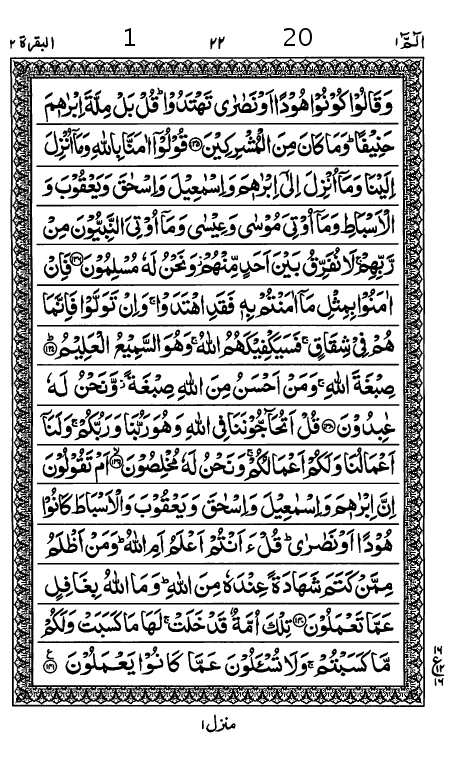 البقرة ٢ 1 ٢٢ 20 الٓمّٓ ١
وَقَالُوْا كُوْنُوْا هُوْدًا اَوْ نَصٰرٰى تَهْتَدُوْا ؕ قُلْ بَلْ مِلَّةَ اِبْرٰهٖمَ
حَنِيْفًا ؕ وَمَا كَانَ مِنَ الْمُشْرِكِيْنَ ﴿۱۳۵﴾ قُوْلُوْۤا اٰمَنَّا بِاللّٰهِ وَمَاۤ اُنْزِلَ
اِلَيْنَا وَمَاۤ اُنْزِلَ اِلٰۤى اِبْرٰهٖمَ وَاِسْمٰعِيْلَ وَاِسْحٰقَ وَيَعْقُوْبَ وَ
الْاَسْبَاطِ وَمَاۤ اُوْتِىَ مُوْسٰى وَعِيْسٰى وَمَاۤ اُوْتِىَ النَّبِيُّوْنَ مِنْ
رَّبِّهِمْ ۚ لَا نُفَرِّقُ بَيْنَ اَحَدٍ مِّنْهُمْ ۖ وَنَحْنُ لَهٗ مُسْلِمُوْنَ ﴿۱۳۶﴾ فَاِنْ
اٰمَنُوْا بِمِثْلِ مَاۤ اٰمَنْتُمْ بِهٖ فَقَدِ اهْتَدَوْا ۚ وَاِنْ تَوَلَّوْا فَاِنَّمَا
هُمْ فِىْ شِقَاقٍ ۚ فَسَيَكْفِيْكَهُمُ اللّٰهُ ۚ وَهُوَ السَّمِيْعُ الْعَلِيْمُ ﴿۱۳۷﴾
صِبْغَةَ اللّٰهِ ۚ وَمَنْ اَحْسَنُ مِنَ اللّٰهِ صِبْغَةً ۫ وَّنَحْنُ لَهٗ
عٰبِدُوْنَ ﴿۱۳۸﴾ قُلْ اَتُحَآجُّوْنَنَا فِى اللّٰهِ وَهُوَ رَبُّنَا وَرَبُّكُمْ ۚ وَلَنَاۤ
اَعْمَالُنَا وَلَكُمْ اَعْمَالُكُمْ ۚ وَنَحْنُ لَهٗ مُخْلِصُوْنَ ﴿۱۳۹﴾ اَمْ تَقُوْلُوْنَ
اِنَّ اِبْرٰهٖمَ وَاِسْمٰعِيْلَ وَاِسْحٰقَ وَيَعْقُوْبَ وَالْاَسْبَاطَ كَانُوْا
هُوْدًا اَوْ نَصٰرٰى ؕ قُلْ ءَاَنْتُمْ اَعْلَمُ اَمِ اللّٰهُ ؕ وَمَنْ اَظْلَمُ
مِمَّنْ كَتَمَ شَهَادَةً عِنْدَهٗ مِنَ اللّٰهِ ؕ وَمَا اللّٰهُ بِغَافِلٍ
عَمَّا تَعْمَلُوْنَ ﴿۱۴۰﴾ تِلْكَ اُمَّةٌ قَدْ خَلَتْ ۚ لَهَا مَا كَسَبَتْ وَلَكُمْ
مَّا كَسَبْتُمْ ۚ وَلَا تُسْـَٔلُوْنَ عَمَّا كَانُوْا يَعْمَلُوْنَ ﴿۱۴۱﴾ ع
منزل ١